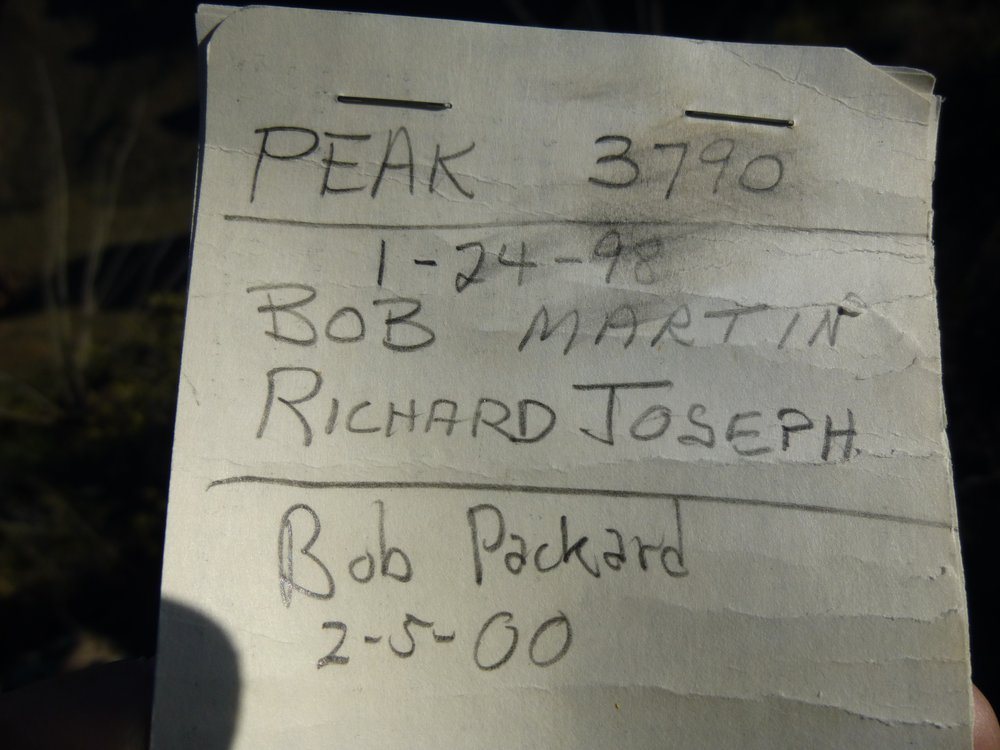 PEAK 3790
1-24-98
BOB MARTIN
RICHARD JOSEPH.
Bob Packard
2-5-00